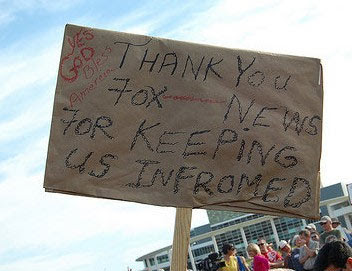 YES
GOD
Bless
America
THANK YOU
FOX NEWS
FOR KEEPING
US INFROMED